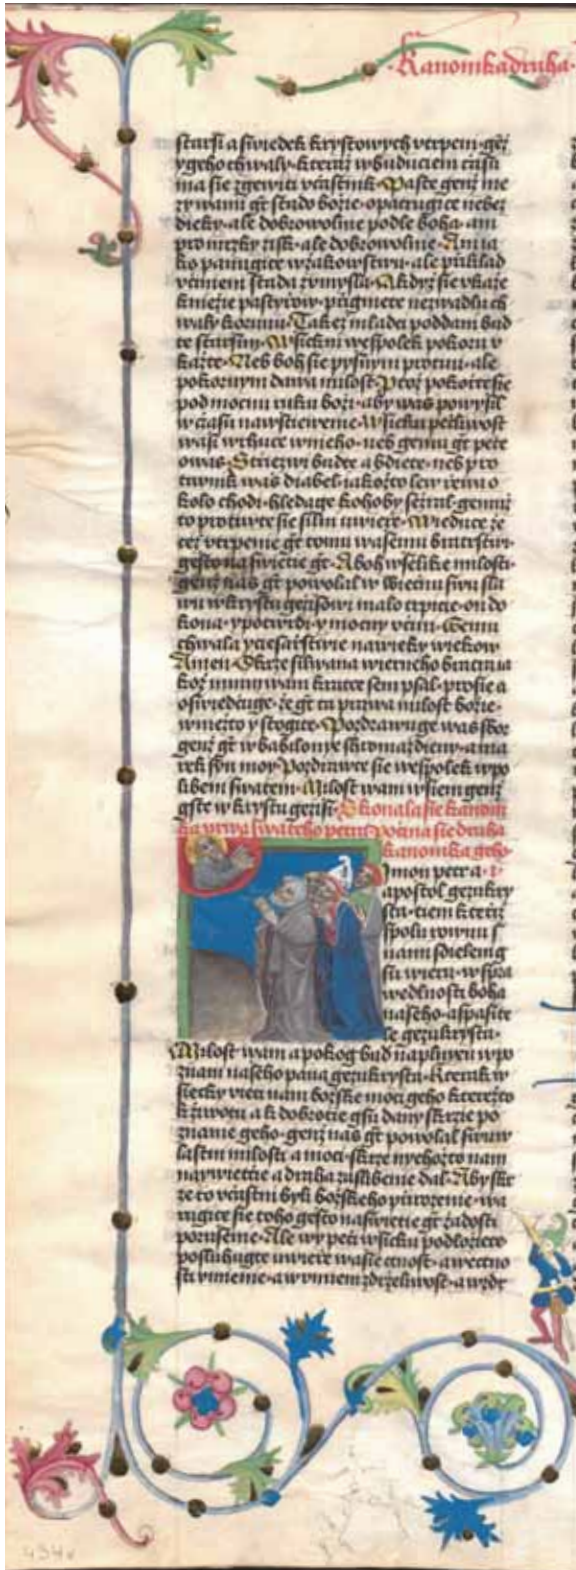 Kanonika druha
starssi a swiedek krystowych vtrpeni gez
y geho chwaly kteraz w buduciem czasu
ma sie zgewiti vczastnik Paste genz me
zy wami gt stado bozie opatrugice nebez
dieky ale dobrowolnie podle boha ani
pro mrzky zisk ale dobrowolnie Ani ia
ko panugice w zakowstwu ale przıklad
vczinieni stada z mysla A kdyz sie vkaze
knieze pastyrzow prıgmete nezwadlu ch
waly korunu Takez mladci poddani bud
te starssim Wssickni wespolek pokoru v
kazte Neb boh sie pyssnym protiwi ale
pokornym dawa milost Protoz pokorte sie
pod mocnu ruku bozi aby was powyssil
w czasu nawsstiewenie Wssicku peczliwost
wassi wrhuce w nieho neb gemu gt pecze
o was Strziezwi budte a bdiete neb pro
tiwnik was diabel iakozto lew rzewa o
kolo chodi hledage kohoby sezral gemuz
to protiwte sie silni v wierze Wieduce ze
tez vtrpenie gt tomu wassemu bratrstwi
gesto na swietie gt A boh wsselike milosti
genz nas gt powolal w wiecznu swu sla
wu w krystu gezissowi malo trpice on do
kona y potwrdi y mocny vczini Gemu
chwala y ciesarstwie na wieky wiekow
Amen Skrze silwana wierneho bratra ia
koz mnim wam kratce sem psal prosie a
oswiedczuge ze gt ta prawa milost bozie
w niezto y stogite Pozdrawuge was sbor
genz gt w babilonye shromazdieny a ma
rek syn moy Pozdrawte sie wespolek w po
libeni swatem Milost wam wssem genz
gste w krystu gezissi Skonala sie kanoni
ka prwa swateho petra Poczina sie druha
kanonika geho
Simon petr a
apostol gezukry
sta tiem kteriz
spolu rownu s
nami sdileni g
su wieru w spra
wedlnosti boha
naseho a spasite
le gezukrysta
Milost wam a pokog bud naplnen w po
znani naseho pana gezukrysta Kterak w
ssecky wieci nam bozske moci geho kterezto
k ziwotu a k dobrotie gsu dany skrzie po
znanie geho genz nas gt powolal swu w
lastni milosti a moci skrze nyehozto nam
naywietcie a draha zaslibenie dal Aby skr
ze to vczastni byli bozskeho przirozenie wa
rugice sie toho gesto na swietie gt zadosti
porussenie Ale wy peczi wssicku podlozitce
posluhugte v wierze wassie ctnost a w ctno
sti vmienie a w vmieni zdrzeliwost a w zdr
434v